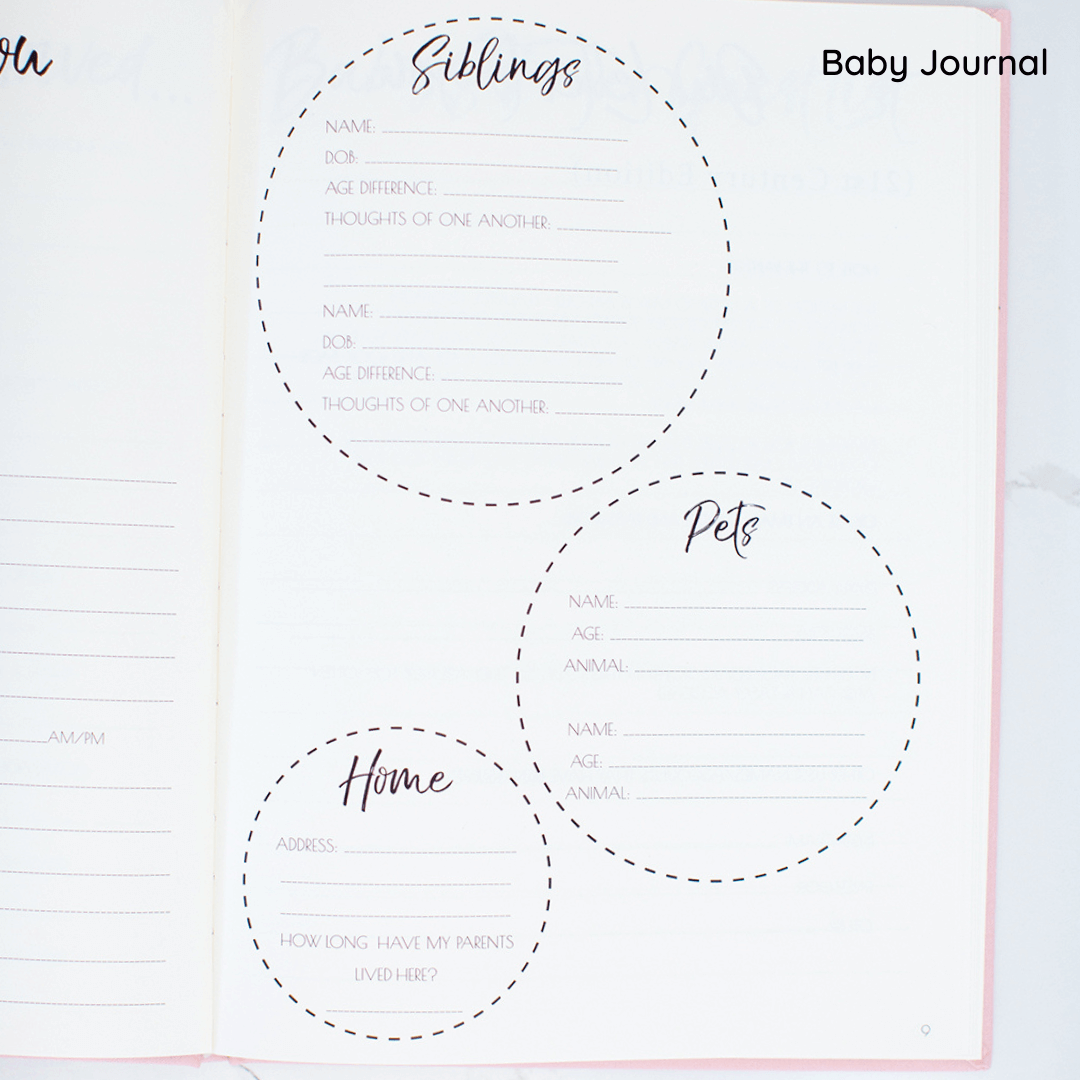 ou
AM/PM
Baby Journal
Siblings
NAME:
D.O.B:
AGE DIFFERENCE:
THOUGHTS OF ONE ANOTHER:
NAME:
D.O.B:
AGE DIFFERENCE:
THOUGHTS OF ONE ANOTHER:
Pets
NAME:
AGE:
ANIMAL:
NAME:
AGE:
ANIMAL:
Home
ADDRESS:
HOW LONG HAVE MY PARENTS
LIVED HERE?
9